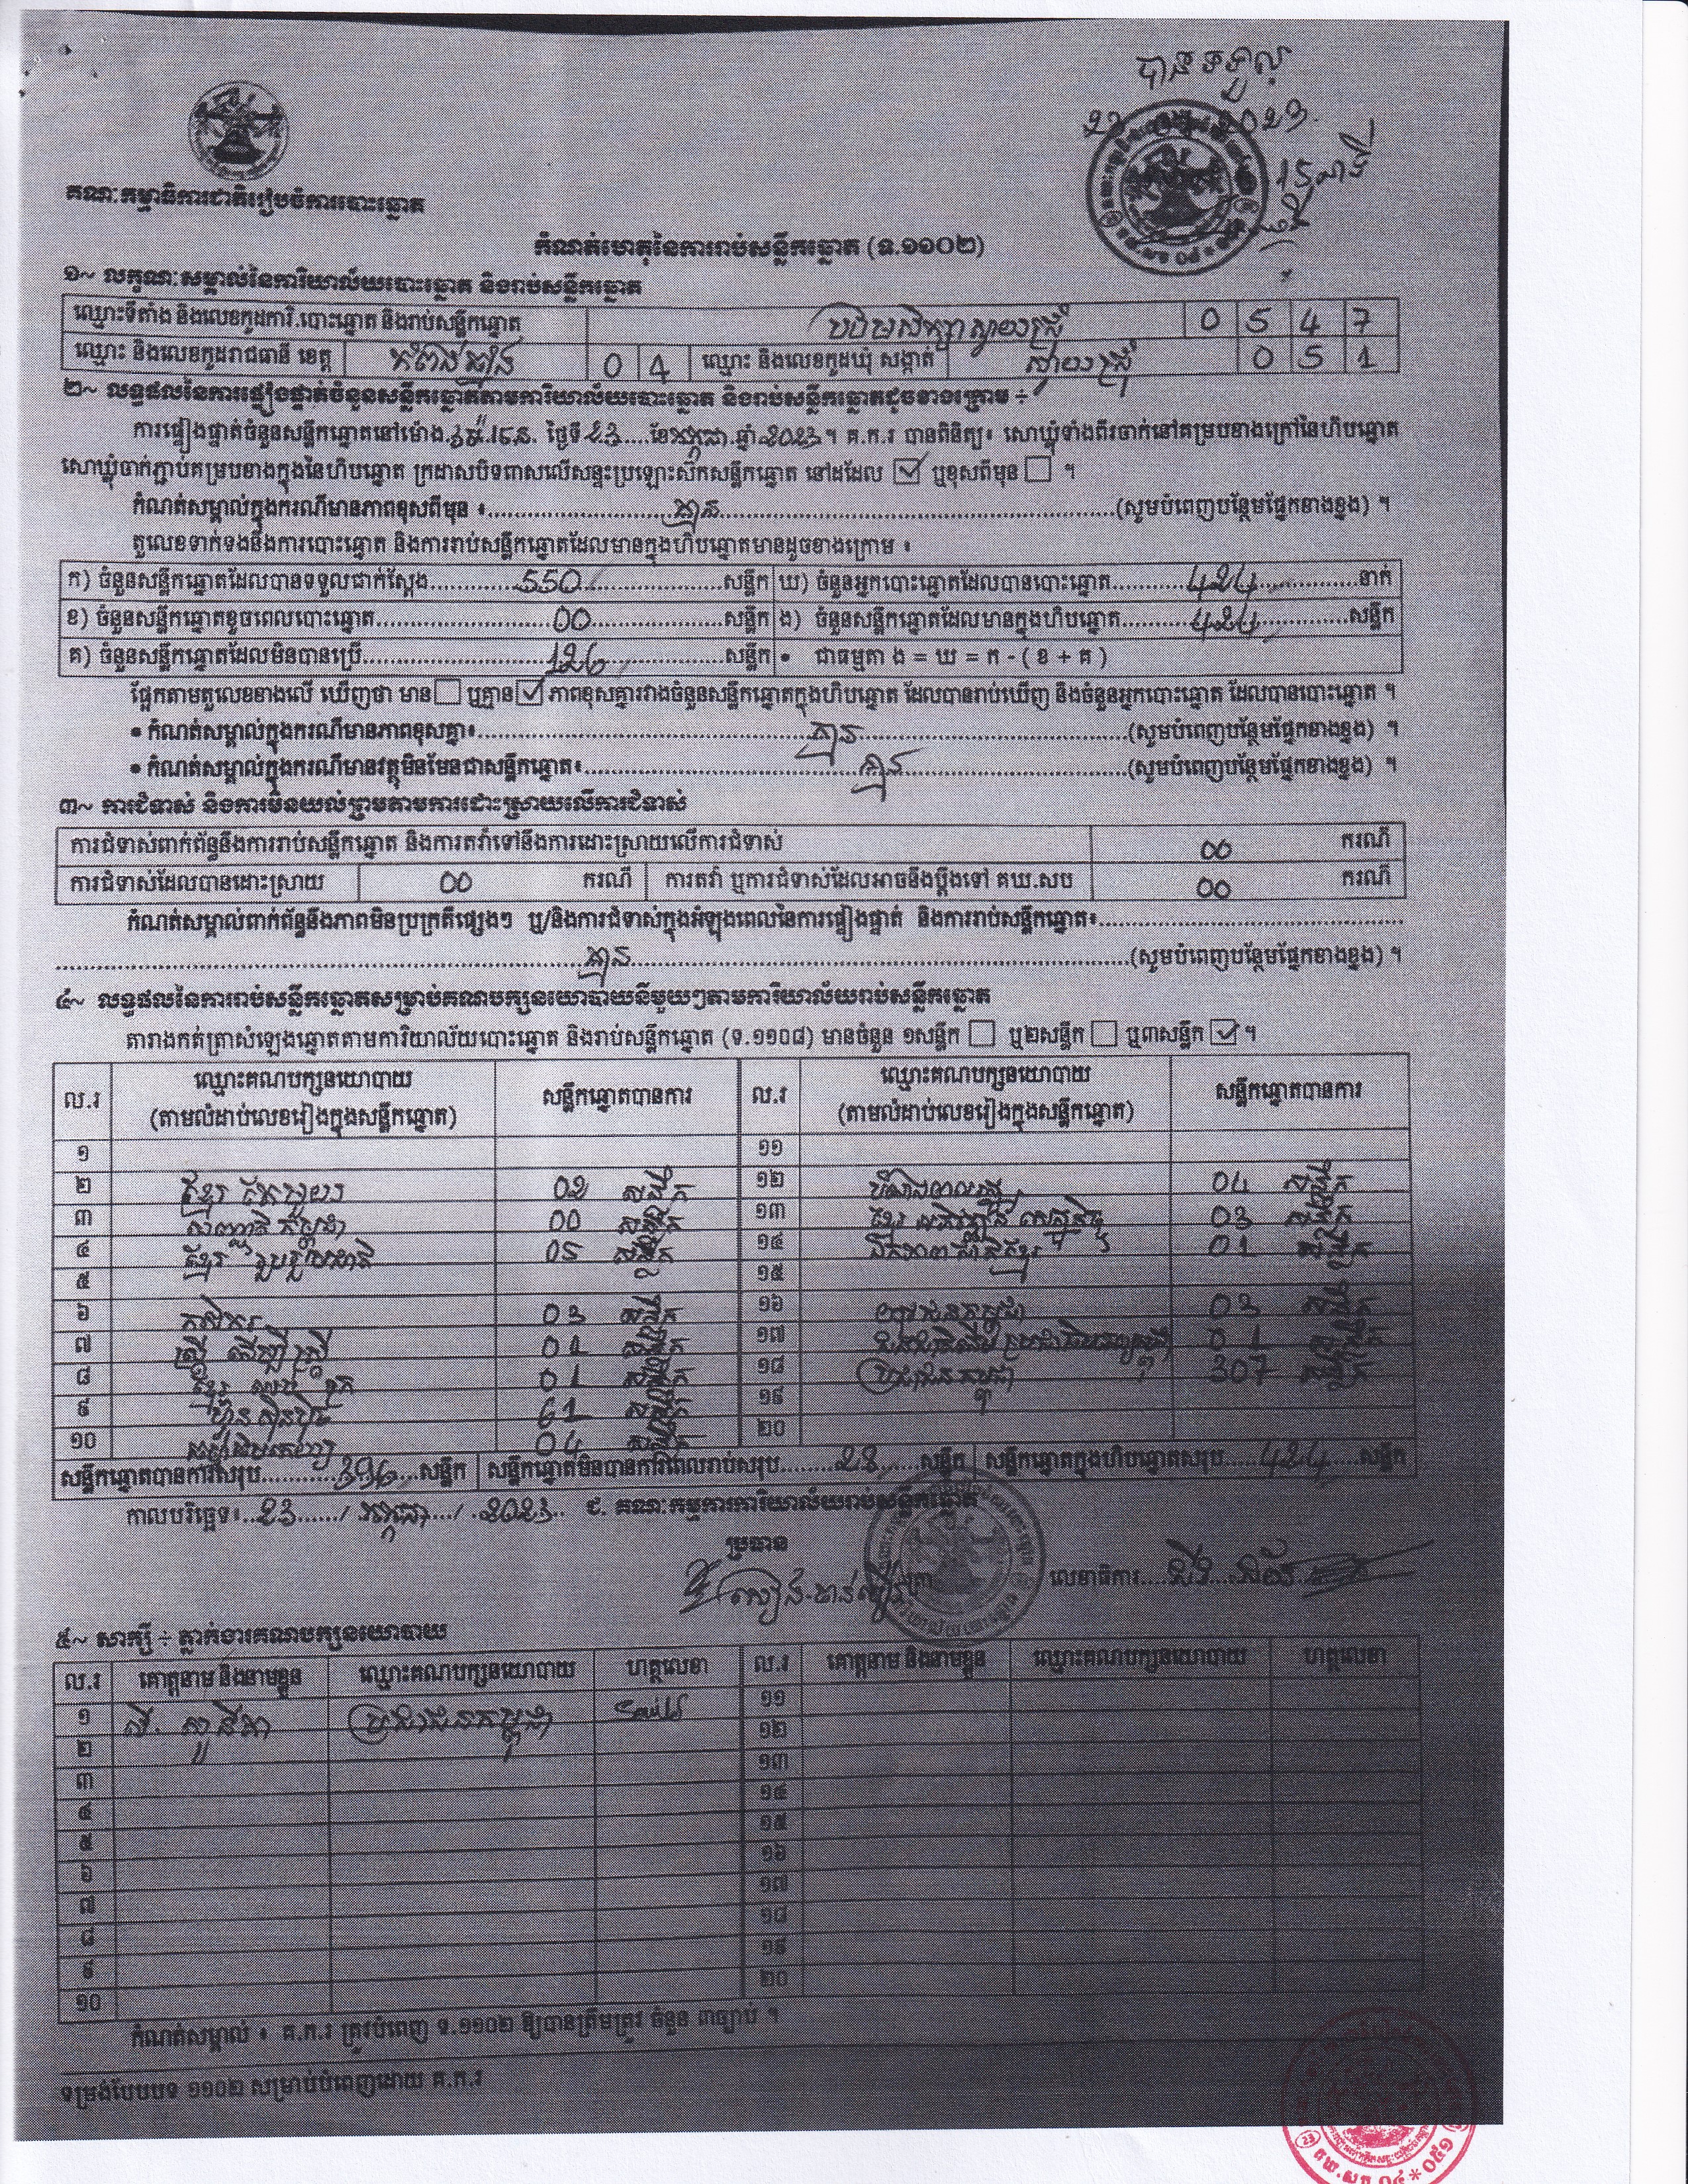 បានទទួល
23 2023
15នាទី
គណៈកម្មាធិការជាតិរៀបចំការបោះឆ្នោត
កំណត់ហេតុនៃការរាប់សន្លឹកឆ្នោត (ទ.១១០២)
១~ លក្ខណៈសម្គាល់នៃការិយាល័យបោះឆ្នោត និងរាប់សន្លឹកឆ្នោត
ឈ្មោះទីតាំង និងលេខកូដការិ.បោះឆ្នោត និងរាប់សន្លឹកឆ្នោត បឋមសិក្សាស្វាយជ្រុំ 0 5 4 7
ឈ្មោះ និងលេខកូដរាជធានី ខេត្ត កំពង់ឆ្នាំង 0 4 ឈ្មោះ និងលេខកូដឃុំ សង្កាត់ ស្វាយជ្រុំ 0 5 1
២~ លទ្ធផលនៃការផ្ទៀងផ្ទាត់ចំនួនសន្លឹកឆ្នោតតាមការិយាល័យបោះឆ្នោត និងរាប់សន្លឹកឆ្នោតដូចខាងក្រោម ÷
ការផ្ទៀងផ្ទាត់ចំនួនសន្លឹកឆ្នោតនៅម៉ោង ថ្ងៃទី 23 ខែ កក្កដា ឆ្នាំ 2023 ។ គ.ក.រ បានពិនិត្យ៖ សោឃ្លុំទាំងពីរចាក់នៅគម្របខាងក្រៅនៃហិបឆ្នោត
សោឃ្លុំចាក់ភ្ជាប់គម្របខាងក្នុងនៃហិបឆ្នោត ក្រដាសបិទពាសលើសន្ទះប្រឡោះស៊កសន្លឹកឆ្នោត នៅដដែល ☑ ឬខុសពីមុន ☐ ។
កំណត់សម្គាល់ក្នុងករណីមានភាពខុសពីមុន ៖ គ្មាន (សូមបំពេញបន្ថែមផ្នែកខាងខ្នង) ។
តួលេខទាក់ទងនឹងការបោះឆ្នោត និងការរាប់សន្លឹកឆ្នោតដែលមានក្នុងហិបឆ្នោតមានដូចខាងក្រោម ៖
ក) ចំនួនសន្លឹកឆ្នោតដែលបានទទួលជាក់ស្តែង 550 សន្លឹក ឃ) ចំនួនអ្នកបោះឆ្នោតដែលបានបោះឆ្នោត 424 នាក់
ខ) ចំនួនសន្លឹកឆ្នោតខូចពេលបោះឆ្នោត 00 សន្លឹក ង) ចំនួនសន្លឹកឆ្នោតដែលមានក្នុងហិបឆ្នោត 424 សន្លឹក
គ) ចំនួនសន្លឹកឆ្នោតដែលមិនបានប្រើ 126 សន្លឹក • ជាធម្មតា ង = ឃ = ក - ( ខ + គ )
ផ្អែកតាមតួលេខខាងលើ ឃើញថា មាន ☐ ឬគ្មាន ☑ ភាពខុសគ្នារវាងចំនួនសន្លឹកឆ្នោតក្នុងហិបឆ្នោត ដែលបានរាប់ឃើញ និងចំនួនអ្នកបោះឆ្នោត ដែលបានបោះឆ្នោត ។
• កំណត់សម្គាល់ក្នុងករណីមានភាពខុសគ្នា៖ គ្មាន (សូមបំពេញបន្ថែមផ្នែកខាងខ្នង) ។
• កំណត់សម្គាល់ក្នុងករណីមានវត្ថុមិនមែនជាសន្លឹកឆ្នោត៖ គ្មាន (សូមបំពេញបន្ថែមផ្នែកខាងខ្នង) ។
៣~ ការជំទាស់ និងការមិនយល់ព្រមតាមការដោះស្រាយលើការជំទាស់
ការជំទាស់ពាក់ព័ន្ធនឹងការរាប់សន្លឹកឆ្នោត និងការតវ៉ាទៅនឹងការដោះស្រាយលើការជំទាស់ 00 ករណី
ការជំទាស់ដែលបានដោះស្រាយ 00 ករណី ការតវ៉ា ឬការជំទាស់ដែលអាចនឹងប្តឹងទៅ គឃ.សប 00 ករណី
កំណត់សម្គាល់ពាក់ព័ន្ធនឹងភាពមិនប្រក្រតីផ្សេងៗ ឬ/និងការជំទាស់ក្នុងអំឡុងពេលនៃការផ្ទៀងផ្ទាត់ និងការរាប់សន្លឹកឆ្នោត៖
គ្មាន (សូមបំពេញបន្ថែមផ្នែកខាងខ្នង) ។
៤~ លទ្ធផលនៃការរាប់សន្លឹកឆ្នោតសម្រាប់គណបក្សនយោបាយនីមួយៗតាមការិយាល័យរាប់សន្លឹកឆ្នោត
តារាងកត់ត្រាសំឡេងឆ្នោតតាមការិយាល័យបោះឆ្នោត និងរាប់សន្លឹកឆ្នោត (ទ.១១០៨) មានចំនួន ១សន្លឹក ☐ ឬ២សន្លឹក ☐ ឬ៣សន្លឹក ☑ ។
ល.រ ឈ្មោះគណបក្សនយោបាយ (តាមលំដាប់លេខរៀងក្នុងសន្លឹកឆ្នោត) សន្លឹកឆ្នោតបានការ ល.រ ឈ្មោះគណបក្សនយោបាយ (តាមលំដាប់លេខរៀងក្នុងសន្លឹកឆ្នោត) សន្លឹកឆ្នោតបានការ
១ ១១
២ ខ្មែរ 02 សន្លឹក ១២ 04 សន្លឹក
៣ សញ្ជាតិ កម្ពុជា 00 សន្លឹក ១៣ ខ្មែរ អភិវឌ្ឍន៍ សេដ្ឋកិច្ច 03 សន្លឹក
៤ ខ្មែរ រួបរួមជាតិ 05 សន្លឹក ១៤ ឯកភាពជាតិខ្មែរ 01 សន្លឹក
៥ ១៥
៦ កសិករ 03 សន្លឹក ១៦ យុវជនកម្ពុជា 03 សន្លឹក
៧ ស្ត្រី ដើម្បី ស្ត្រី 01 សន្លឹក ១៧ 01 សន្លឹក
៨ ខ្មែរ ឈប់ ក្រ 01 សន្លឹក ១៨ ប្រជាជនកម្ពុជា 307 សន្លឹក
៩ ហ៊្វុនស៊ិនប៉ិច 61 សន្លឹក ១៩
១០ 04 សន្លឹក ២០
សន្លឹកឆ្នោតបានការសរុប 396 សន្លឹក សន្លឹកឆ្នោតមិនបានការពេលរាប់សរុប 28 សន្លឹក សន្លឹកឆ្នោតក្នុងហិបឆ្នោតសរុប 424 សន្លឹក
កាលបរិច្ឆេទ៖ 23 / កក្កដា / 2023 ជ. គណៈកម្មការការិយាល័យរាប់សន្លឹកឆ្នោត
ប្រធាន
លេខាធិការ
៥~ សាក្សី ÷ ភ្នាក់ងារគណបក្សនយោបាយ
ល.រ គោត្តនាម និងនាមខ្លួន ឈ្មោះគណបក្សនយោបាយ ហត្ថលេខា ល.រ គោត្តនាម និងនាមខ្លួន ឈ្មោះគណបក្សនយោបាយ ហត្ថលេខា
១ ប្រជាជនកម្ពុជា ១១
២ ១២
៣ ១៣
៤ ១៤
៥ ១៥
៦ ១៦
៧ ១៧
៨ ១៨
៩ ១៩
១០ ២០
កំណត់សម្គាល់ ៖ គ.ក.រ ត្រូវបំពេញ ទ.១១០២ ឱ្យបានត្រឹមត្រូវ ចំនួន ៣ច្បាប់ ។
ទម្រង់បែបបទ ១១០២ សម្រាប់បំពេញដោយ គ.ក.រ